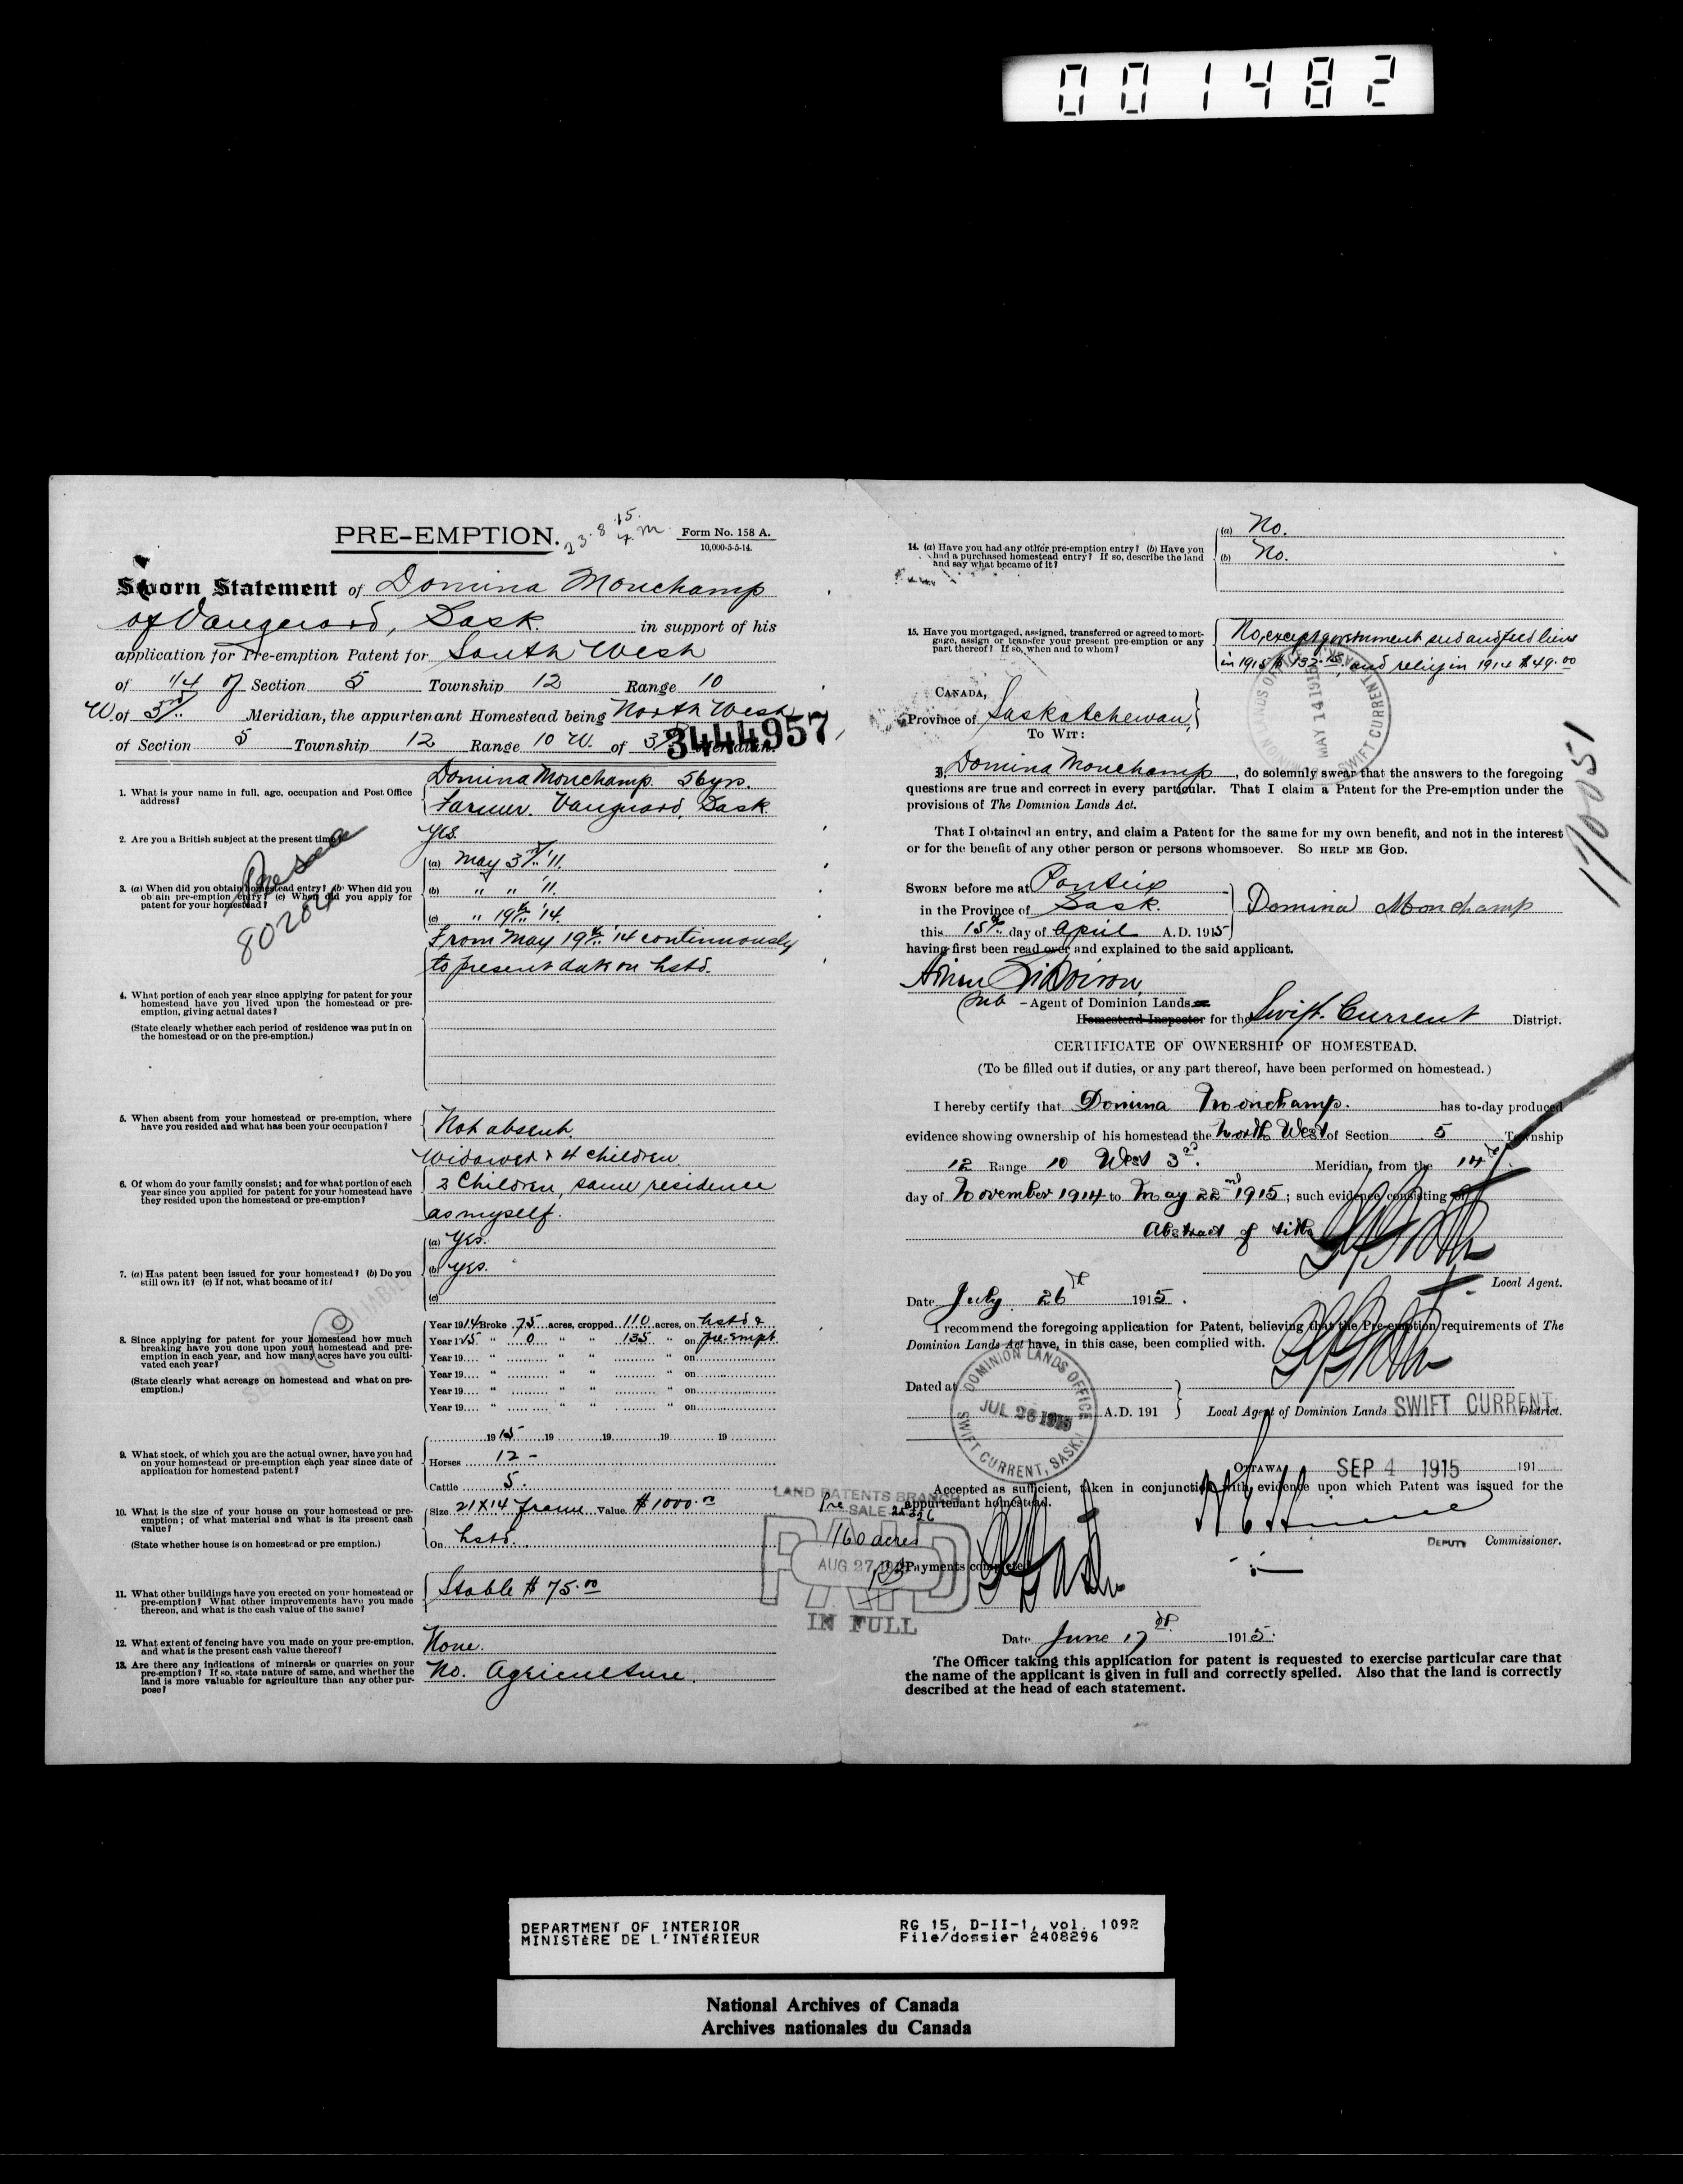 001482
PRE-EMPTION.
23.8.15.
Form No. 158 A.
10,000-5-5-14.
Sworn Statement of Domina Monchamp
of Vanguard, Sask. in support of his
application for Pre-emption Patent for South West
of 1/4 of Section 5 Township 12 Range 10
W. of 3rd Meridian, the appurtenant Homestead being North West
of Section 5 Township 12 Range 10 W. of 3rd Meridian.
3444957
1. What is your name in full, age, occupation and Post Office address?
Domina Monchamp. 56 yrs.
Farmer. Vanguard, Sask.
2. Are you a British subject at the present time?
Yes.
3. (a) When did you obtain homestead entry? (b) When did you
obtain pre-emption entry? (c) When did you apply for
patent for your homestead?
(a) May 3rd '11.
(b) " " '11.
(c) " 19th '14.
80204
4. What portion of each year since applying for patent for your
homestead have you lived upon the homestead or pre-
emption, giving actual dates?
(State clearly whether each period of residence was put in on
the homestead or on the pre-emption.)
From May 19th '14 continuously
to present date on hstd.
5. When absent from your homestead or pre-emption, where
have you resided and what has been your occupation?
Not absent.
6. Of whom do your family consist; and for what portion of each
year since you applied for patent for your homestead have
they resided upon the homestead or pre-emption?
Widower & 4 children.
2 Children, same residence
as myself.
7. (a) Has patent been issued for your homestead? (b) Do you
still own it? (c) If not, what became of it?
(a) Yes.
(b) yes.
(c)
8. Since applying for patent for your homestead how much
breaking have you done upon your homestead and pre-
emption in each year, and how many acres have you culti-
vated each year?
(State clearly what acreage on homestead and what on pre-
emption.)
Year 1914 Broke 75 acres, cropped 110 acres, on hstd &
Year 1915 " 0 " " 135 " on pre-empt.
Year 19 " " " " on
Year 19 " " " " on
Year 19 " " " " on
Year 19 " " " " on
9. What stock, of which you are the actual owner, have you had
on your homestead or pre-emption each year since date of
application for homestead patent?
1915 19 19 19 19
Horses 12 -
Cattle 5.
10. What is the size of your house on your homestead or pre-
emption; of what material and what is its present cash
value?
(State whether house is on homestead or pre emption.)
Size 21 X 14 frame. Value. $1000.00
On hstd.
11. What other buildings have you erected on your homestead or
pre-emption? What other improvements have you made
thereon, and what is the cash value of the same?
Stable $75.00
12. What extent of fencing have you made on your pre-emption,
and what is the present cash value thereof?
None.
13. Are there any indications of minerals or quarries on your
pre-emption? If so, state nature of same, and whether the
land is more valuable for agriculture than any other pur-
pose?
No. Agriculture.
14. (a) Have you had any other pre-emption entry? (b) Have you
had a purchased homestead entry? If so, describe the land
and say what became of it?
(a) No.
(b) No.
15. Have you mortgaged, assigned, transferred or agreed to mort-
gage, assign or transfer your present pre-emption or any
part thereof? If so, when and to whom?
No, except government seed and feed liens
in 1915 and relief in 1914 $49.00
DOMINION LANDS OFFICE
MAY 14 1915
SWIFT CURRENT, SASK.
CANADA,
Province of Saskatchewan,
TO WIT:
170051
I, Domina Monchamp, do solemnly swear that the answers to the foregoing
questions are true and correct in every particular. That I claim a Patent for the Pre-emption under the
provisions of The Dominion Lands Act.
That I obtained an entry, and claim a Patent for the same for my own benefit, and not in the interest
or for the benefit of any other person or persons whomsoever. SO HELP ME GOD.
SWORN before me at Ponteix
in the Province of Sask.
this 15th day of April A.D. 1915
Domina Monchamp
having first been read over and explained to the said applicant.
Sub - Agent of Dominion Lands
Homestead Inspector for the Swift Current District.
CERTIFICATE OF OWNERSHIP OF HOMESTEAD.
(To be filled out if duties, or any part thereof, have been performed on homestead.)
I hereby certify that Domina Monchamp. has to-day produced
evidence showing ownership of his homestead the North West of Section 5 Township
12 Range 10 West 3rd. Meridian, from the 14th
day of November 1914 to May 22nd 1915; such evidence consisting of
Abstract of title
Local Agent.
Date July 26th 1915.
I recommend the foregoing application for Patent, believing that the Pre-emption requirements of The
Dominion Lands Act have, in this case, been complied with.
Dated at
A.D. 191
DOMINION LANDS OFFICE
JUL 26 1915
SWIFT CURRENT, SASK.
Local Agent of Dominion Lands SWIFT CURRENT. District.
OTTAWA, SEP 4 1915 191
Accepted as sufficient, taken in conjunction with evidence upon which Patent was issued for the
appurtenant homestead.
DEPUTY Commissioner.
LAND PATENTS BRANCH
Pre
SALE
160 acres
PAID
AUG 27 1915
IN FULL
Payments completed
Date June 17th 1915.
The Officer taking this application for patent is requested to exercise particular care that
the name of the applicant is given in full and correctly spelled. Also that the land is correctly
described at the head of each statement.
DEPARTMENT OF INTERIOR
MINISTÈRE DE L'INTÉRIEUR
RG 15, D-II-1, vol. 1092
File/dossier 2408296
National Archives of Canada
Archives nationales du Canada